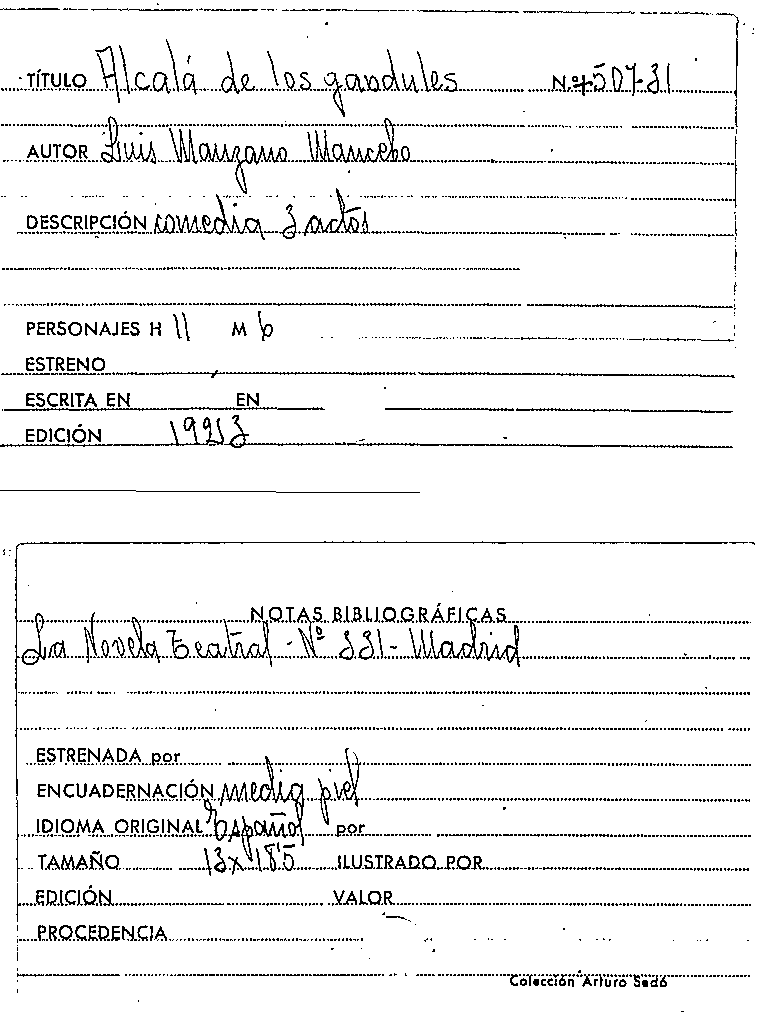 TÍTULO Alcalá de los gandules N.º 507-31
AUTOR Luis Manzano Mancebo
DESCRIPCIÓN comedia 3 actos
PERSONAJES H 11 M 6
ESTRENO
ESCRITA EN EN
EDICIÓN 1923
NOTAS BIBLIOGRÁFICAS
La Novela Teatral - Nº 331 - Madrid
ESTRENADA por
ENCUADERNACIÓN media piel
IDIOMA ORIGINAL Español por
TAMAÑO 13x18'5 ILUSTRADO POR
EDICIÓN VALOR
PROCEDENCIA
Colección Arturo Sedó